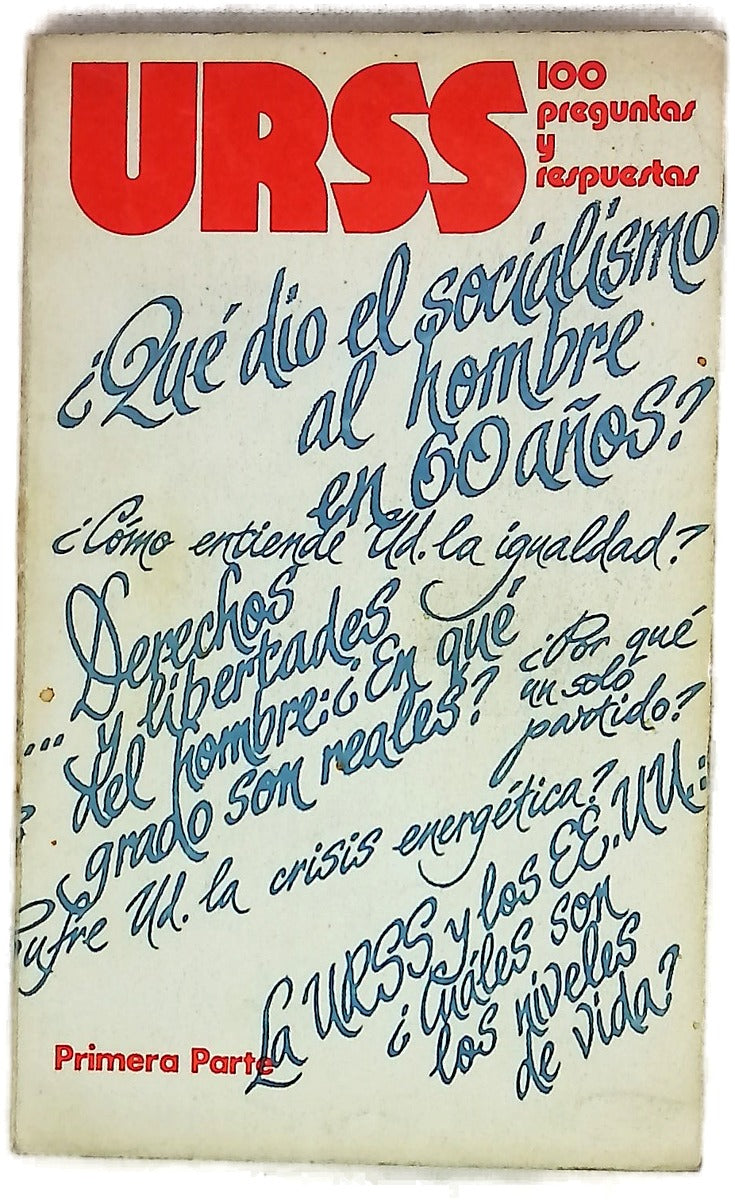 URSS
100
preguntas
y
respuestas
¿Qué dio el socialismo
al hombre
en 60 años?
¿Cómo entiende Ud. la igualdad?
Derechos
... y libertades
del hombre: ¿En qué
grado son reales?
¿Por qué
un solo
partido?
¿
Sufre Ud. la crisis energética?
La URSS y los EE. UU.:
¿Cuáles son
los niveles
de vida?
Primera Parte